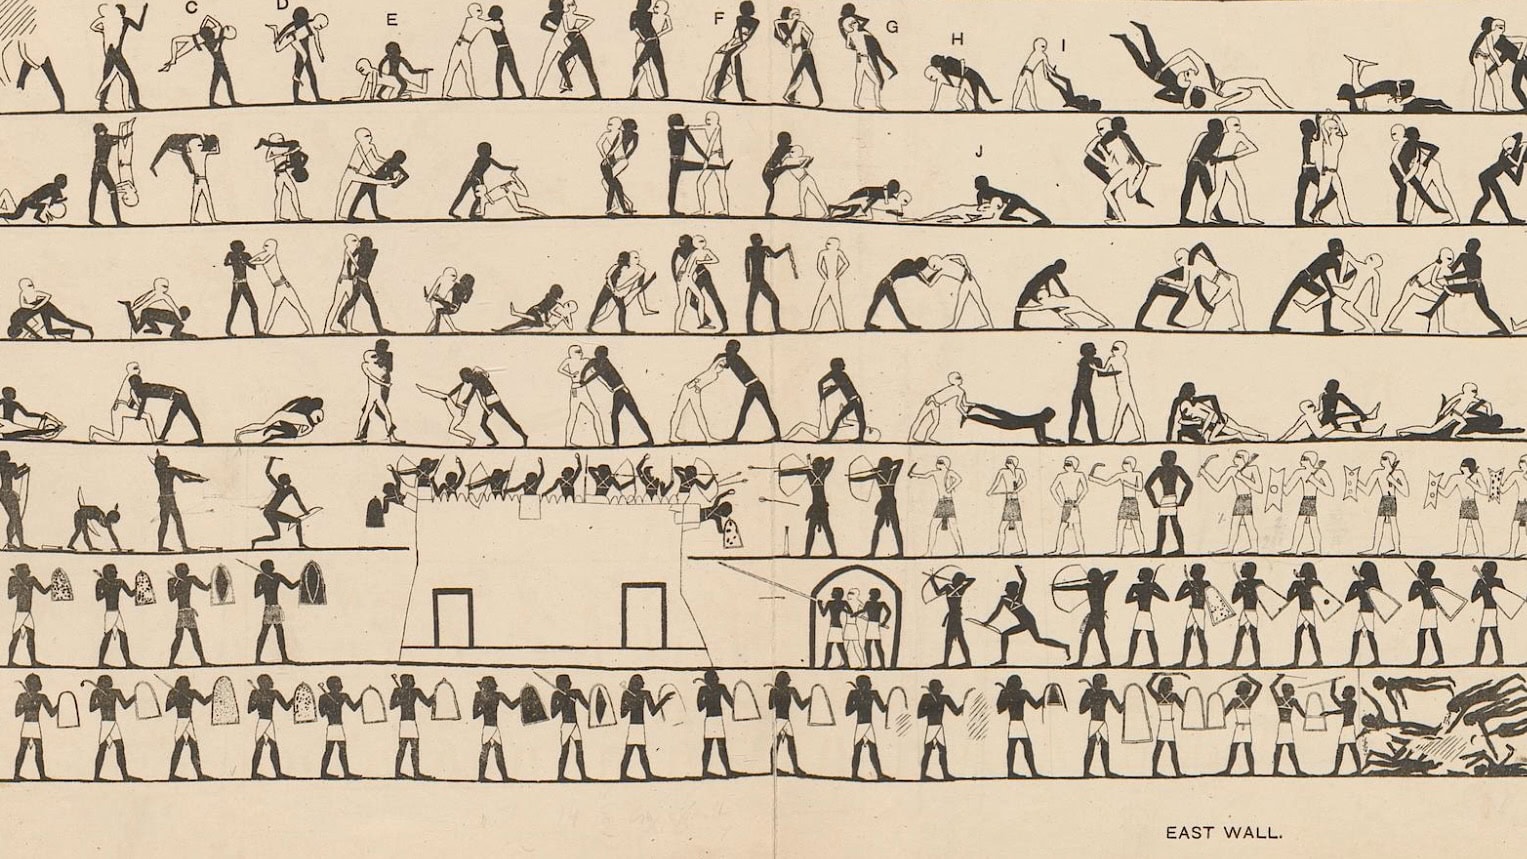 C D E F G H I
J
EAST WALL.